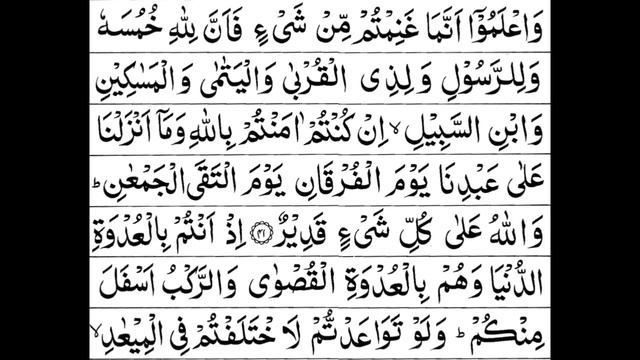 وَاعْلَمُوْۤا اَنَّمَا غَنِمْتُمْ مِّنْ شَیْءٍ فَاَنَّ لِلّٰهِ خُمُسَهٗ
وَلِلرَّسُوْلِ وَلِذِی الْقُرْبٰی وَالْیَتٰمٰی وَالْمَسٰكِیْنِ
وَابْنِ السَّبِیْلِ ۙ اِنْ كُنْتُمْ اٰمَنْتُمْ بِاللّٰهِ وَمَاۤ اَنْزَلْنَا
عَلٰی عَبْدِنَا یَوْمَ الْفُرْقَانِ یَوْمَ الْتَقَی الْجَمْعٰنِ ؕ
وَاللّٰهُ عَلٰی كُلِّ شَیْءٍ قَدِیْرٌ ﴿۴۱﴾ اِذْ اَنْتُمْ بِالْعُدْوَةِ
الدُّنْیَا وَهُمْ بِالْعُدْوَةِ الْقُصْوٰی وَالرَّكْبُ اَسْفَلَ
مِنْكُمْ ؕ وَلَوْ تَوَاعَدْتُّمْ لَاخْتَلَفْتُمْ فِی الْمِیْعٰدِ ۙ